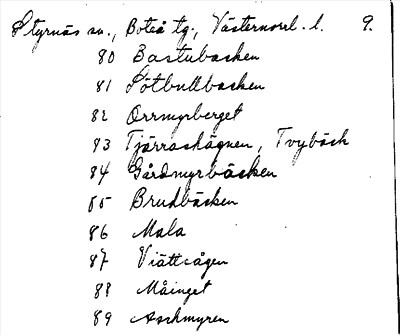 Styrnäs sn., Boteå tg., Västernorrl. l. 9.
80 Bastubacken
81 Sötbullbacken
82 Orrmyrberget
83 Tjärraskågnen, Tvybäck
84 Gårdmyrbäcken
85 Brudbäcken
86 Mala
87
88 Måinget
89 Aschmyren